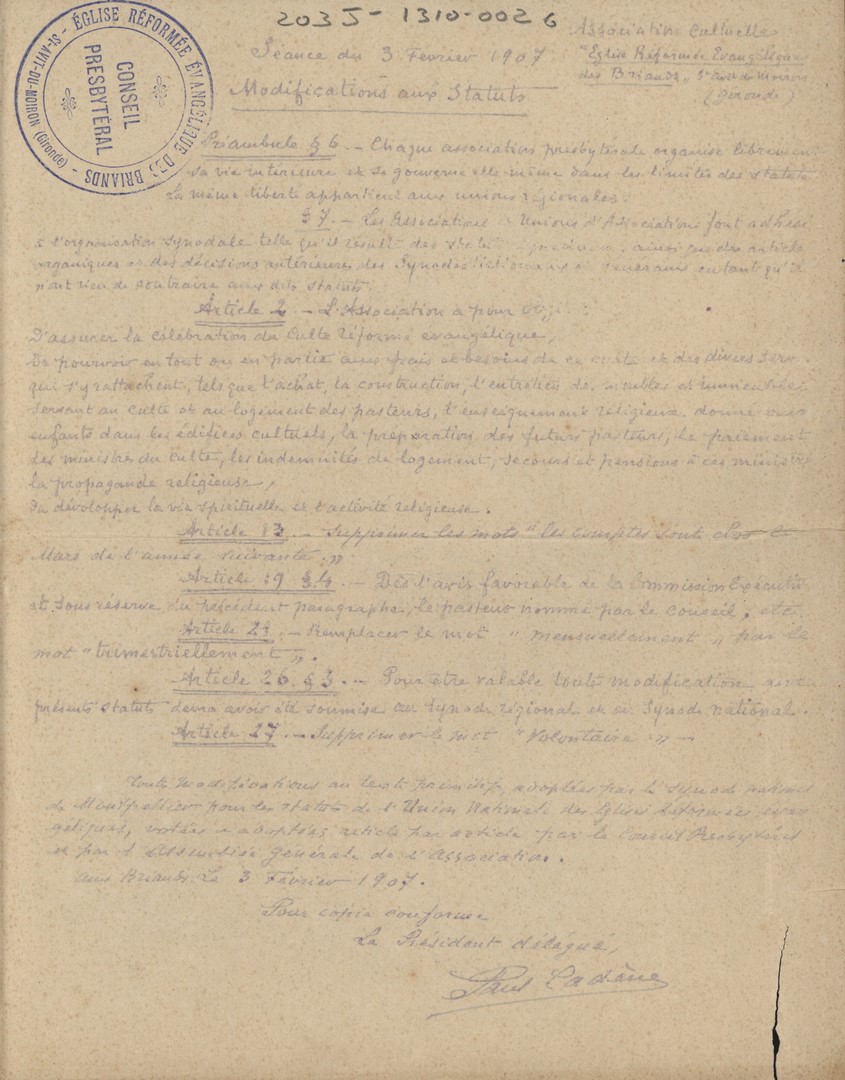 203J-1310-0026
ÉGLISE RÉFORMÉE ÉVANGÉLIQUE DES BRIANDS - St-AVIT-DU-MOIRON (Gironde)
CONSEIL
PRESBYTÉRAL
Association Cultuelle
"Eglise Réformée Evangélique
des Briands" St avit du moiron
(Gironde)
Séance du 3 Février 1907
Modifications aux Statuts
Préambule § 6. - Chaque association presbytérale organise librement
sa vie intérieure et se gouverne elle même dans les limites des statuts
La même liberté appartient aux unions régionales.
§ 7. - Les Associations Unions d'Associations font adhési
à l'organisation synodale telle qu'il résulte des ainsi que des article
organiques et des décisions antérieures des Synodes et généraux en tant qu'il
n'ont rien de contraire aux dits statuts.
Article 2 - L'Association a pour
D'assurer la célébration du Culte réformé évangélique,
De pourvoir en tout ou en partie aux frais et besoins de ce culte et des divers serv
qui s'y rattachent, tels que l'achat, la construction, l'entretien des meubles et immeubles
servant au culte et au logement des pasteurs, l'enseignement religieux donné aux
enfants dans les édifices cultuels, la préparation des futurs pasteurs, le paiement
des ministres du culte, les indemnités de logement, secours et pensions à ces ministre
la propagande religieuse,
De développer la vie spirituelle et l'activité religieuse.
Article 13. - Supprimer les mots "les comptes sont clos le
Mars de l'année suivante."
Article 19 § 4. - Dès l'avis favorable de la Commission Exécutive
et sous réserve du précédent paragraphe, le pasteur nommé par le conseil, etc.
Article 21. - Remplacer le mot "mensuellement" par le
mot "trimestriellement".
Article 26 § 3. - Pour être valable toute modification aux
présents statuts devra avoir été soumise au Synode régional et au Synode national.
Article 27. - Supprimer le mot "Volontaire" -
Toutes modifications au texte primitif, adoptées par le Synode national
de Montpellier pour les statuts de l'Union Nationale des Eglises Réformées évan
géliques, votées et adoptées article par article par le Conseil Presbytéral
et par l'Assemblée générale de l'Association.
aux Briands le 3 Février 1907.
Pour copie conforme
Le Président délégué,
Paul Cadène